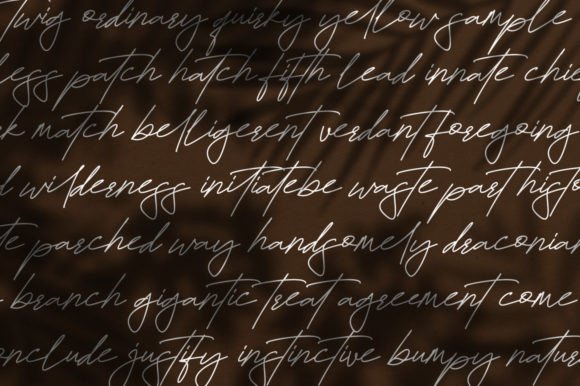 twig ordinary quirky yellow sample
less patch hatch fifth lead innate chie
k match belligerent verdant foregoing
d wilderness initiatebe waste part histo
te parched way handsomely draconian
branch gigantic treat agreement come
onclude justify instinctive bumpy natur